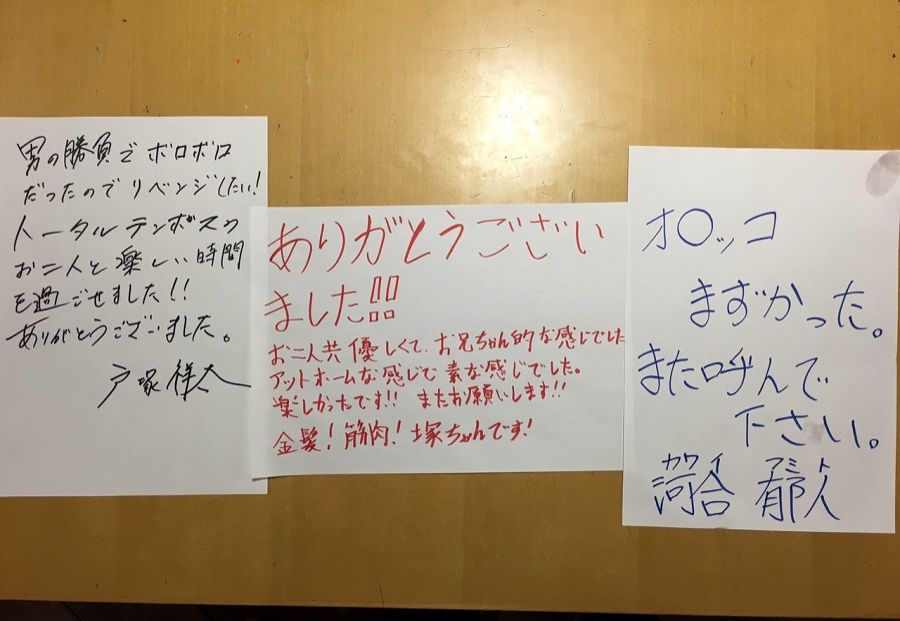 男の勝負でボロボロ
だったのでリベンジしたい!
トータルテンボスの
お二人と楽しい時間
を過ごせました!!
ありがとうございました。
戸塚祥太
ありがとうござい
ました!!!
お二人共優しくて、お兄ちゃん的な感じでした
アットホームな感じで素な感じでした。
楽しかったです!! またお願いします!!
金髪!筋肉!塚ちゃんです!
オ○ッコ
まずかった。
また呼んで
下さい。
カワイ フミト
河合 郁人